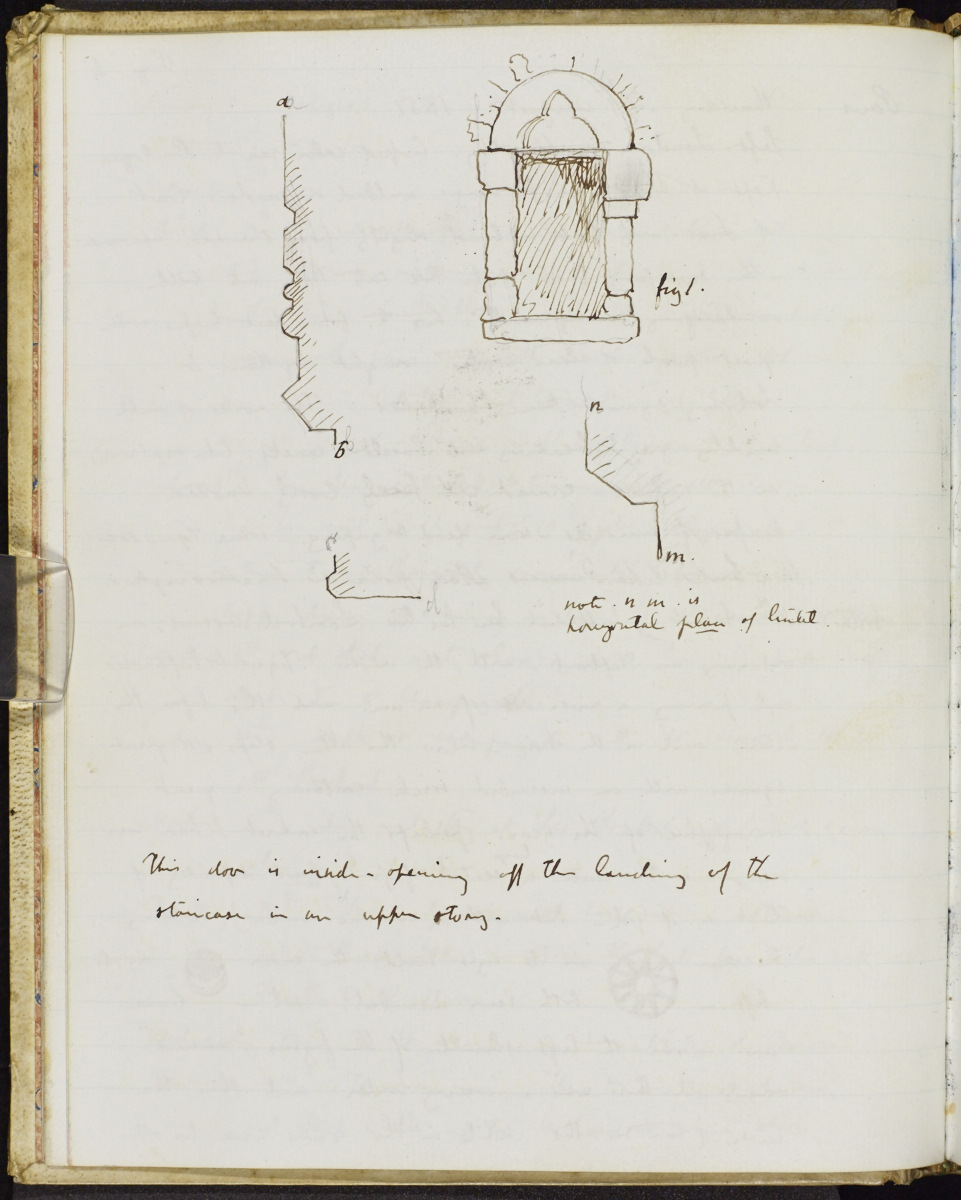 a
fig 1.
b
n
m.
c
d
note. n m. is
horizontal plan of lintel.
This door is inside - opening off the landing of the
staircase in an upper story.